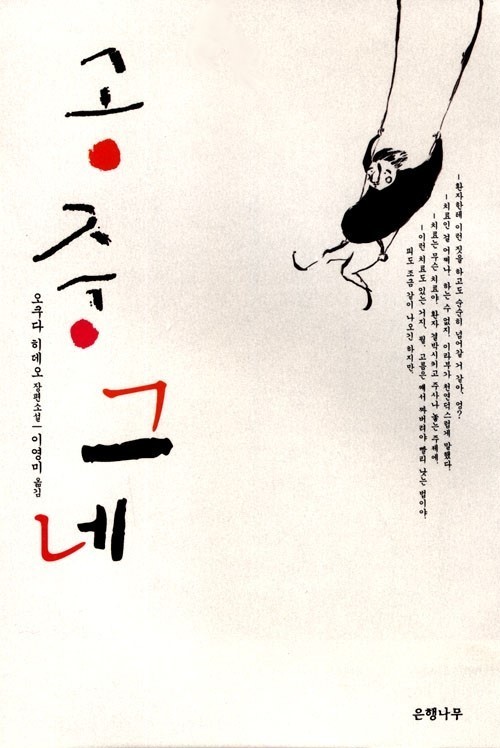 공중그네
오쿠다 히데오 장편소설 | 이영미 옮김
–환자한테 이런 짓을 하고도 순순히 넘어갈 거 같아, 엉?
–치료인 걸 어쩌나. 하는 수 없지. 이라부가 천연덕스럽게 말했다.
–치료는 무슨 치료야. 환자 결박시키고 주사나 놓는 주제에.
–이런 치료도 있는 거지, 뭘. 고름은 째서 짜버려야 빨리 낫는 법이야.
피도 조금 같이 나오긴 하지만.
은행나무